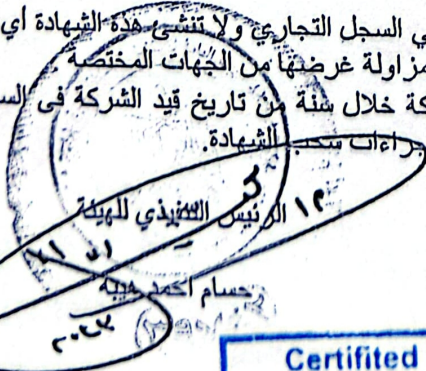 في السجل التجاري ولا تنشئ هذه الشهادة أي
مزاولة غرضها من الجهات المختصة
كة خلال سنة من تاريخ قيد الشركة فى الس
براءات سحب الشهادة.
الرئيس التنفيذي للهيئة
حسام أحمد هيبة
٢٠٢٣
Certifited